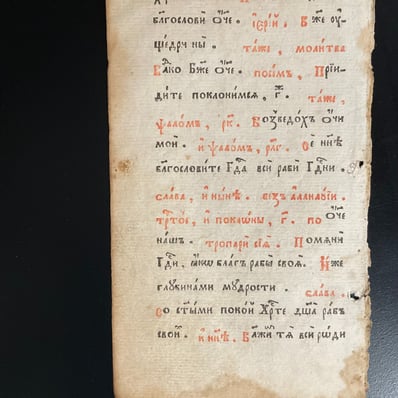 благослови ѿче . іерей , Бж҃е оу҆-
щедри ны̀ . таже , молитва
Влⷣко Бж҃е ѿче . посемъ , Прїи-
дите поклонимся , г҃ . таже ,
ѱаломъ , рк҃ . Возведохъ очи
мои . и҆ ѱаломъ , рл҃г . Се нн҃ѣ
благословите Гдⷭ҇а вси раби Гдⷭ҇ни .
слава , и҆ нынѣ . без алилуїи .
трст҃ое , и҆ поклоны , г҃ . по ѿче
нашъ . тропари сїѧ . Помѧни
Гдⷭ҇и , ꙗкѡ благъ рабы своѧ . Иже
глубинами мудрости . слава .
Со ст҃ыми покой Хрⷭ҇те дш҃а рабъ
свои . и҆ нн҃ѣ . Блажи҆ тѧ вси роди